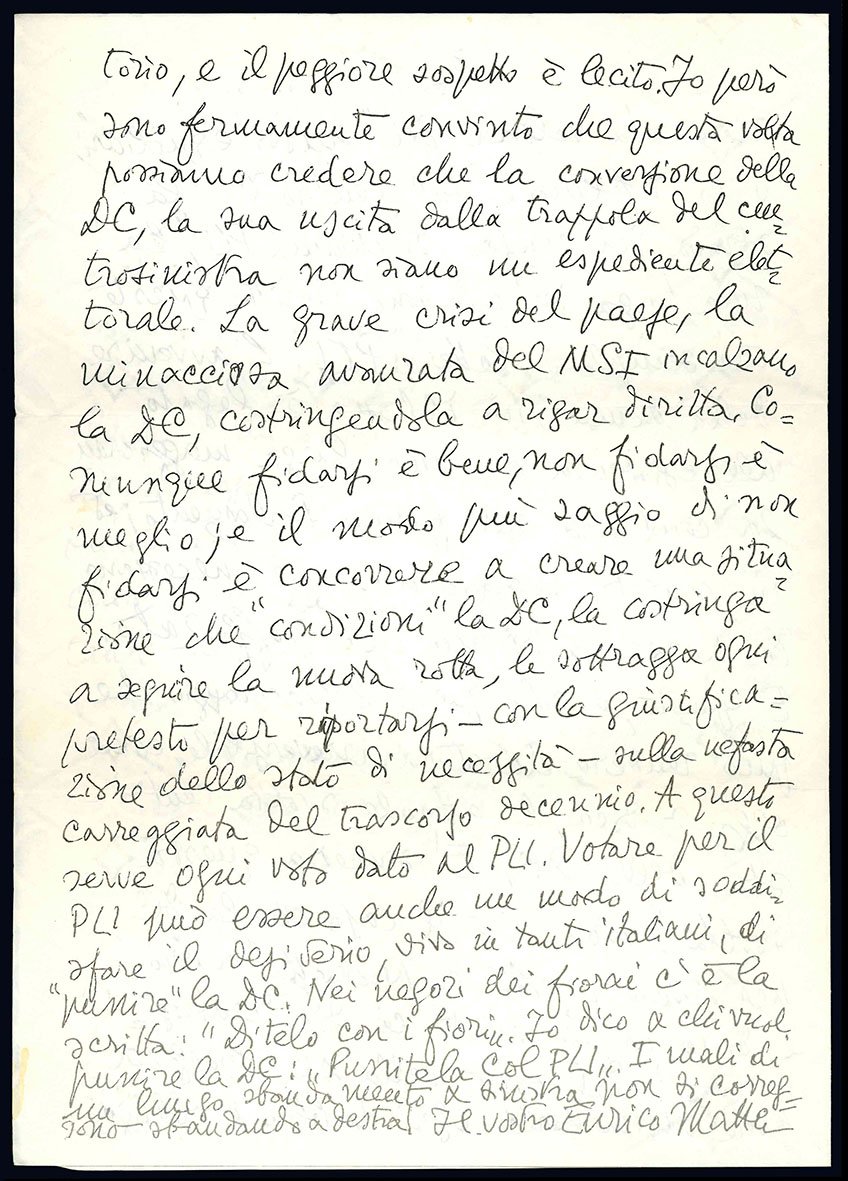 torio, e il peggiore sospetto è lecito. Io però
sono fermamente convinto che questa volta
possiamo credere che la conversione della
DC, la sua uscita dalla trappola del cen=
trosinistra non siano un espediente elet=
torale. La grave crisi del paese, la
minacciosa avanzata del MSI incalzano
la DC, costringendola a rigar diritta. Co=
munque fidarsi è bene, non fidarsi è
meglio; e il modo più saggio di non
fidarsi è concorrere a creare una situa=
zione che "condizioni" la DC, la costringa
a seguire la nuova rotta, le sottragga ogni
pretesto per riportarsi – con la giustifica=
zione dello stato di necessità – sulla nefasta
carreggiata del trascorso decennio. A questo
serve ogni voto dato al PLI. Votare per il
PLI può essere anche un modo di soddi=
sfare il desiderio, vivo in tanti italiani, di
"punire" la DC. Nei negozi dei fiorai c'è la
scritta: "Ditelo con i fiori". Io dico a chi vuol
punire la DC: "Punitela col PLI". I mali di
un lungo sbandamento a sinistra non si correg=
gono sbandando a destra. Il vostro Enrico Mattei